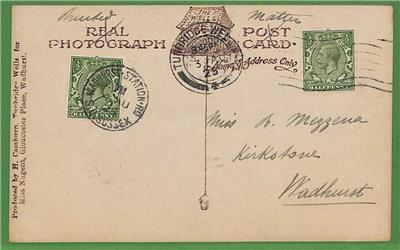 Printed Matter
THE
WELLS
REAL
PHOTOGRAPH
POST
CARD
Address Only
TUNBRIDGE WELLS
23
HALFPENNY
HALFPENNY
STATION RD
SUSSEX
Miss R. Mezzena
Kirkstone
Wadhurst
Produced by H. Camburn, Tunbridge Wells for
Miss Nugent, Gloucester Place, Wadhurst